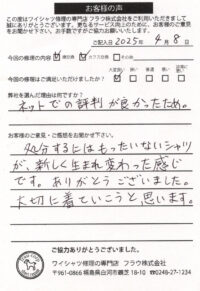 お客様の声
この度はワイシャツ修理の専門店 フラウ株式会社をご利用いただきまして
誠にありがとうございます。更なるサービス向上のために、お客様のご意見を
お聞かせ下さい。お手数ですがご協力お願いいたします。
ご記入日 2025年 4月 8日
今回の修理の内容
今回の修理はご満足いただけましたか？
弊社を選んだ理由は何ですか？
ネットでの評判が良かったため。
お客様のご意見・ご感想をお聞かせ下さい。
処分するにはもったいないシャツ
が、新しく生まれ変わった感じ
です。ありがとうございました。
大切に着ていこうと思います。
ご協力ありがとうございました。
ワイシャツ修理の専門店 フラウ株式会社
〒961-0866 福島県白河市鍛冶町 18-10 ☎0248-27-1234